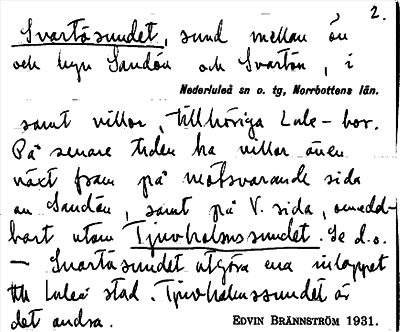 2.
Svartösundet, sund mellan ön
och Sandön och Svartön, i
Nederluleå sn o. tg, Norrbottens län.
samt villor, tillhöriga Lule-bor.
På senare tiden ha villor även
växt fram på motsvarande sida
av Sandön, samt på V. sida, omedel-
bart utom Tjuvholmssundet. Se d.o.
— Svartösundet utgöra ena inloppet
till Luleå stad. Tjuvholmssundet är
det andra.
EDVIN BRÄNNSTRÖM 1931.